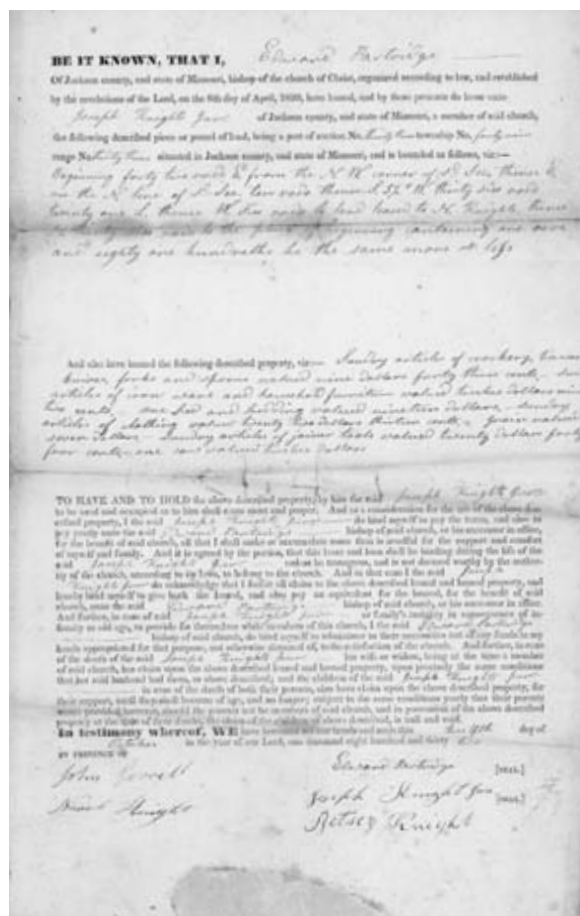 BE IT KNOWN, THAT I, Edward Partridge
Of Jackson county, and state of Missouri, bishop of the church of Christ, organized according to law, and established
by the revelations of the Lord, on the 6th day of April, 1830, have leased, and by these presents do lease unto
Joseph Knight Jun of Jackson county, and state of Missouri, a member of said church,
the following described piece or parcel of land, being a part of section No. thirty three township No. forty nine
range No thirty three situated in Jackson county, and state of Missouri, and is bounded as follows, viz:—
Beginning forty two rods E. from the N. W. corner of Sd Sec. thence E.
on the N. line of Sd Sec. rods thence S. W. thirty six rods
twenty one L. thence W. rods to land leased to N. Knight, thence
rods to the beginning containing one acre
and eighty one hundredths be the same more or less
And also have loaned the following described property, viz:— Sundry articles of crockery,
knives, forks and spoons valued nine dollars forty three cents,
articles of iron ware and household furniture valued twelve dollars
two cents, one bed and bedding valued nineteen dollars, sundry
articles of clothing valued twenty two dollars thirteen cents, grain valued
seven dollars Sundry articles of joiner tools valued twenty dollars forty
four cents, one valued twelve dollars
TO HAVE AND TO HOLD the above described property, by him the said Joseph Knight Jun
to be used and occupied as to him shall seem meet and proper. And as a consideration for the use of the above described
property, I the said Joseph Knight Jun do bind myself to pay the taxes, and also to
pay yearly unto the said Edward Partridge bishop of said church, or his successor in office,
for the benefit of said church, all that I shall make or accumulate more than is needful for the support and comfort
of myself and family. And it is agreed by the parties, that this lease and loan shall be binding during the life of the
said Joseph Knight Jun unless he transgress, and is not deemed worthy by the authority
of the church, according to its laws, to belong to the church. And in that case I the said Joseph
Knight Jun do acknowledge that I forfeit all claim to the above described leased and loaned property, and
hereby bind myself to give back the leased, and also pay an equivalent for the loaned, for the benefit of said
church, unto the said Edward Partridge bishop of said church, or his successor in office.
And further, in case of said Joseph Knight Jun or family's inability in consequence of infirmity
or old age, to provide for themselves while members of this church, I the said Edward Partridge
bishop of said church, do bind myself to administer to their necessities out of any funds in my
hands appropriated for that purpose, not otherwise disposed of, to the satisfaction of the church. And further, in case
of the death of the said Joseph Knight Jun his wife or widow, being at the time a member
of said church, has claim upon the above described leased and loaned property, upon precisely the same conditions
that her said husband had them, as above described; and the children of the said Joseph Knight Jun
in case of the death of both their parents, also have claim upon the above described property, for
their support, until they shall become of age, and no longer; subject to the same conditions yearly that their parents
were: provided however, should the parents not be members of said church, and in possession of the above described
property at the time of their deaths, the claim of the children as above described, is null and void.
In testimony whereof, WE have hereunto set our hands and seals this day of
October in the year of our Lord, one thousand eight hundred and thirty
IN PRESENCE OF
Edward Partridge [SEAL.]
John
Joseph Knight Jun [SEAL.]
Knight
Betsey Knight